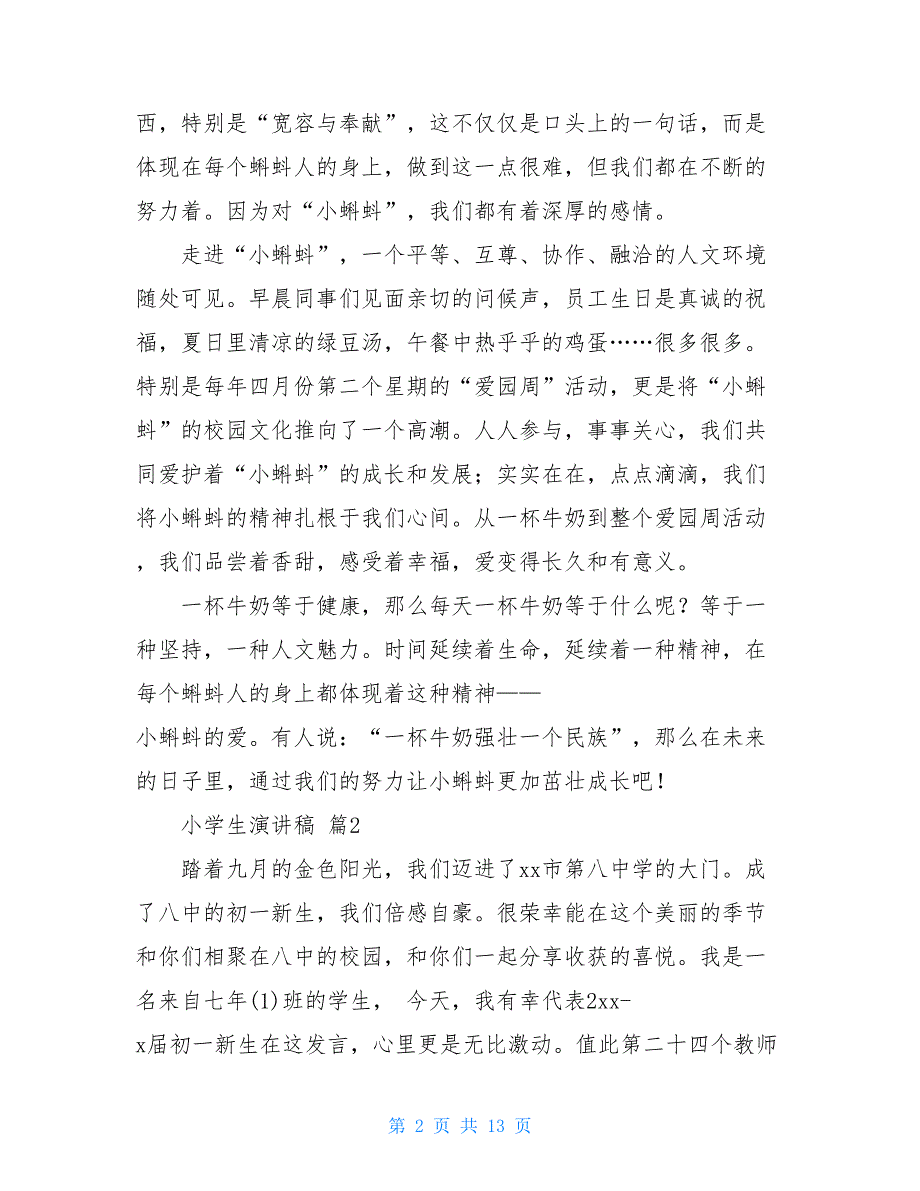 西，特别是“宽容与奉献”，这不仅仅是口头上的一句话，而是
体现在每个蝌蚪人的身上，做到这一点很难，但我们都在不断的
努力着。因为对“小蝌蚪”，我们都有着深厚的感情。
走进“小蝌蚪”，一个平等、互尊、协作、融洽的人文环境
随处可见。早晨同事们见面亲切的问候声，员工生日是真诚的祝
福，夏日里清凉的绿豆汤，午餐中热乎乎的鸡蛋……很多很多。
特别是每年四月份第二个星期的“爱园周”活动，更是将“小蝌
蚪”的校园文化推向了一个高潮。人人参与，事事关心，我们共
同爱护着“小蝌蚪”的成长和发展；实实在在，点点滴滴，我们
将小蝌蚪的精神扎根于我们心间。从一杯牛奶到整个爱园周活动
，我们品尝着香甜，感受着幸福，爱变得长久和有意义。
一杯牛奶等于健康，那么每天一杯牛奶等于什么呢？等于一
种坚持，一种人文魅力。时间延续着生命，延续着一种精神，在
每个蝌蚪人的身上都体现着这种精神——
小蝌蚪的爱。有人说：“一杯牛奶强壮一个民族”，那么在未来
的日子里，通过我们的努力让小蝌蚪更加茁壮成长吧！
小学生演讲稿 篇2
踏着九月的金色阳光，我们迈进了xx市第八中学的大门。成
了八中的初一新生，我们倍感自豪。很荣幸能在这个美丽的季节
和你们相聚在八中的校园，和你们一起分享收获的喜悦。我是一
名来自七年(1)班的学生， 今天，我有幸代表2xx-
x届初一新生在这发言，心里更是无比激动。值此第二十四个教师
第 2 页 共 13 页